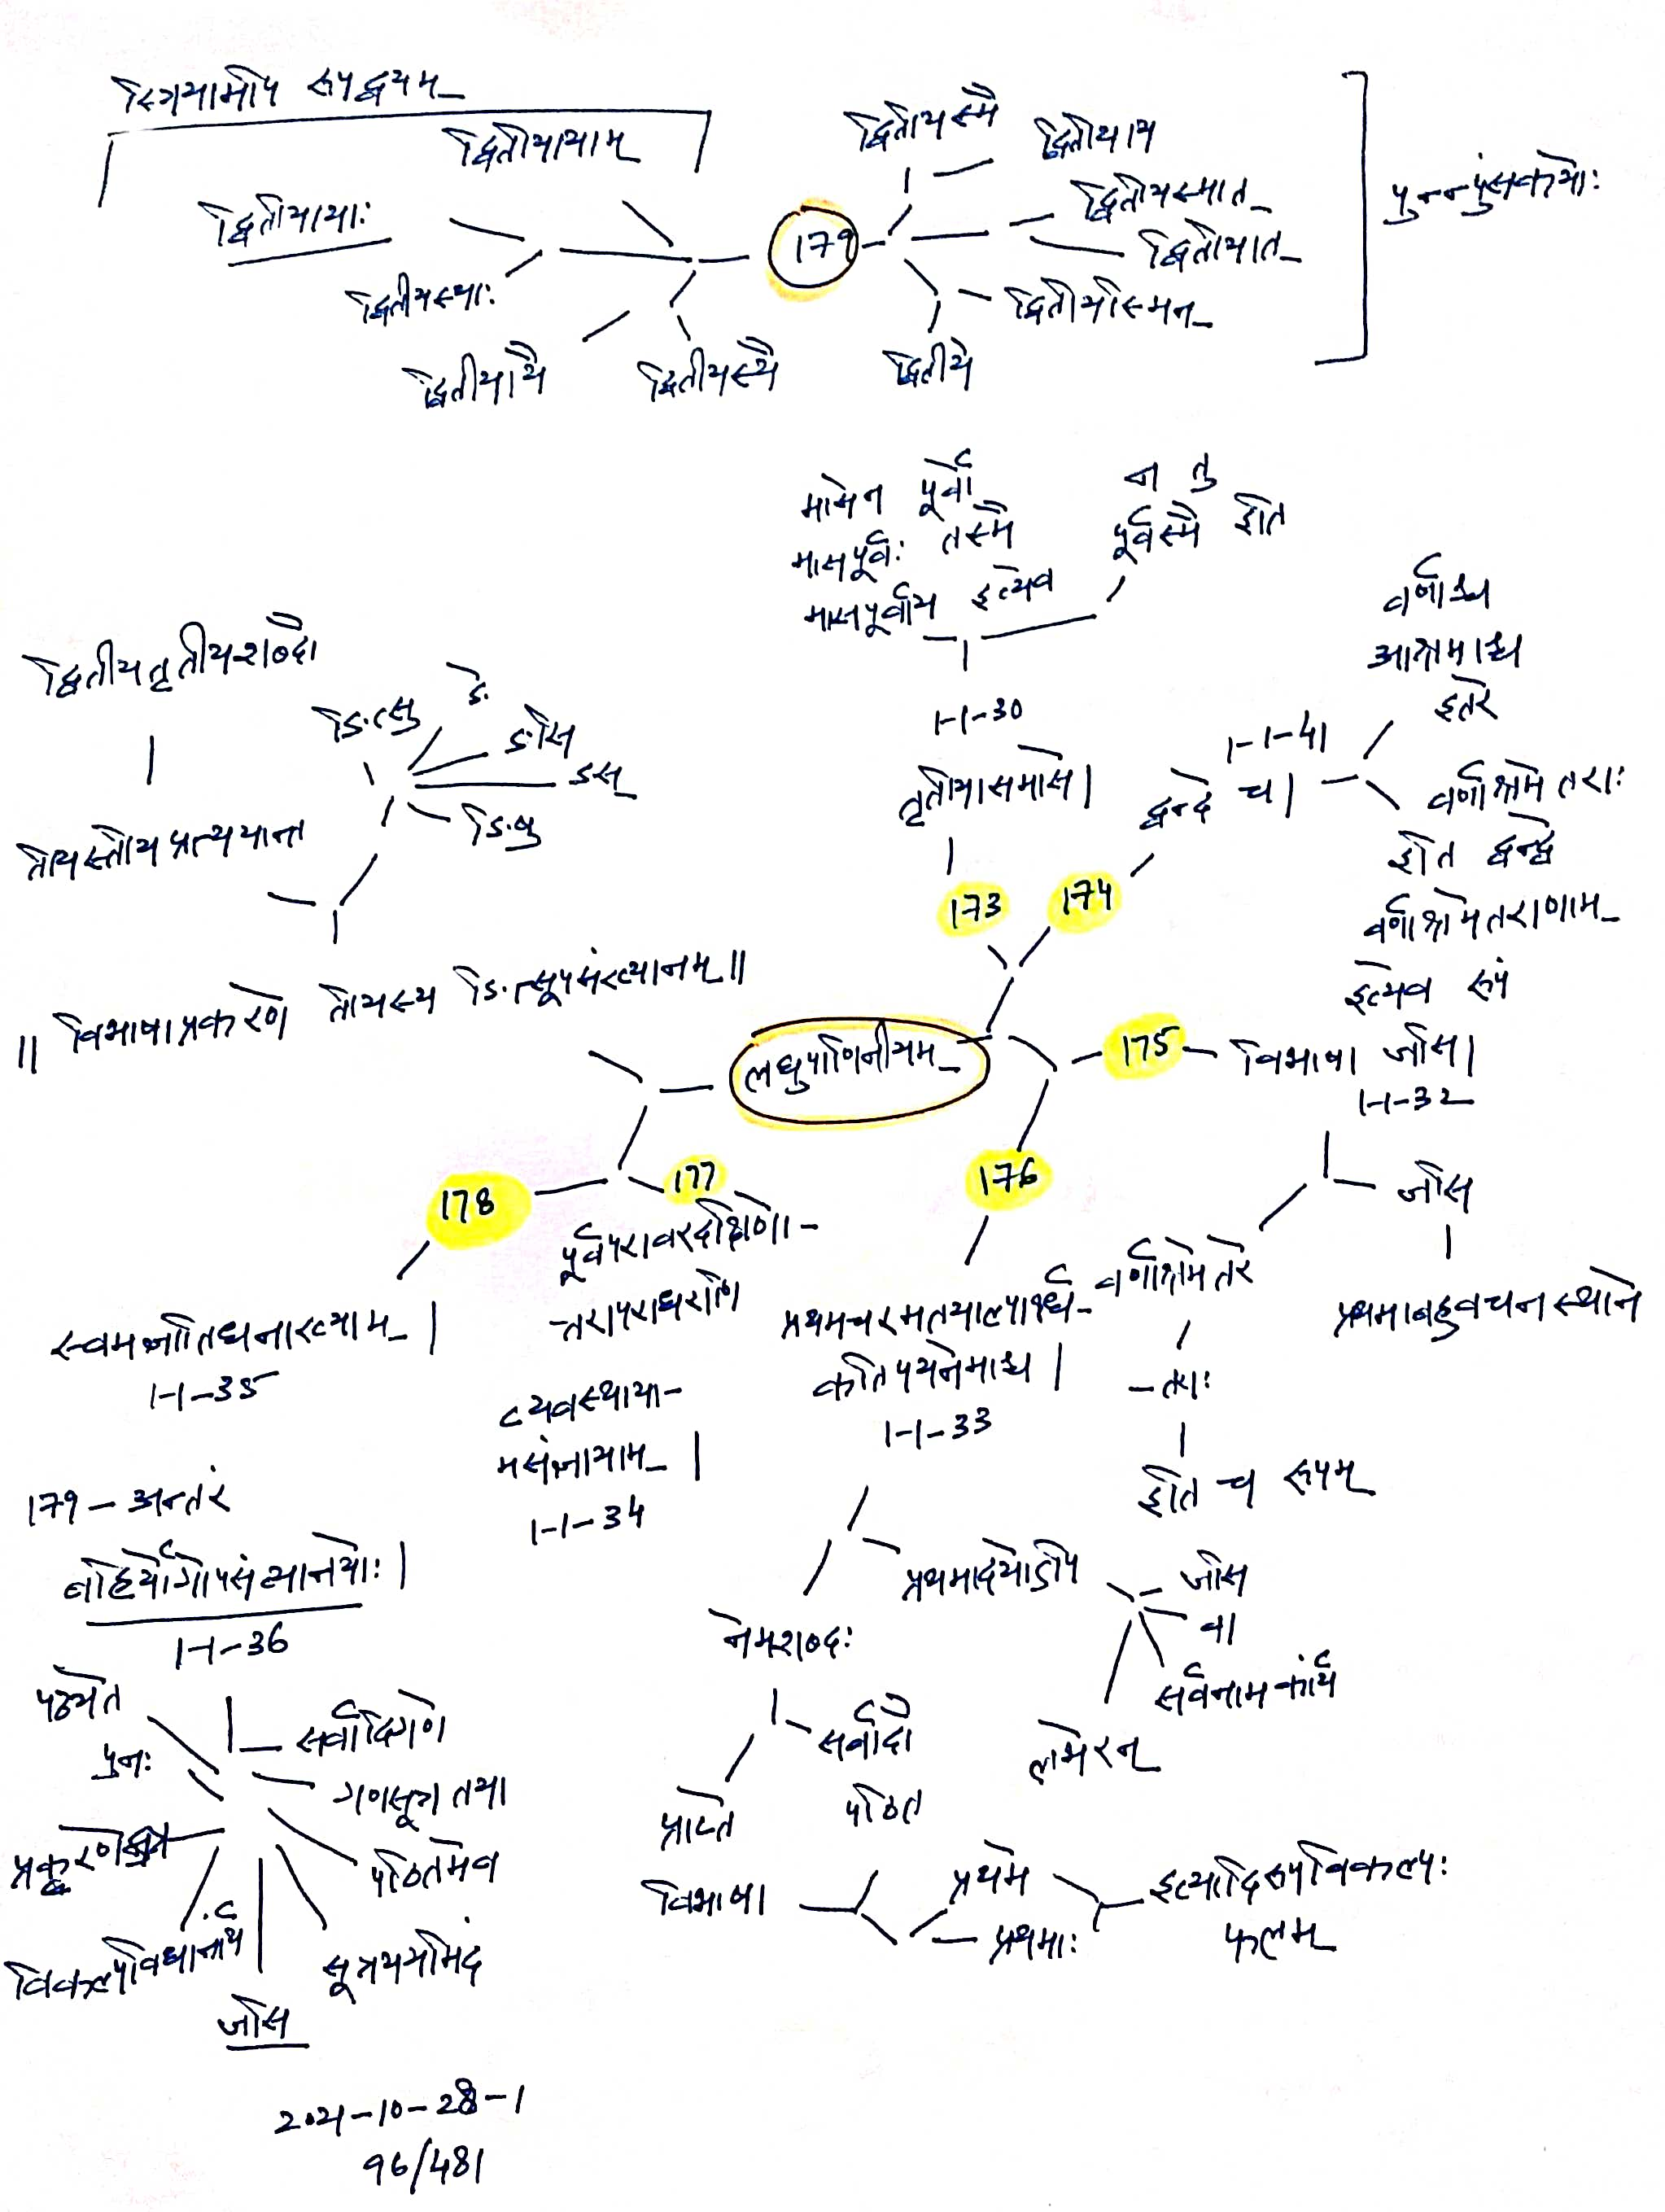 स्त्रियामपि रूपद्वयम्
द्वितीयायाम्
द्वितीयायाः
द्वितीयस्याः
द्वितीयायै
द्वितीयस्यै
179
द्वितीयस्मै
द्वितीयाय
द्वितीयस्मात्
द्वितीयात्
द्वितीयस्मिन्
द्वितीये
पुन्नपुंसकयोः
मासेन पूर्वो
मासपूर्वः तस्मै
मासपूर्वाय इत्येव
न तु
पूर्वस्मै इति
1-1-30
तृतीयासमासे।
173
174
द्वन्द्वे च।
1-1-41
वर्णाश्च
आश्रमाश्च
इतरे
वर्णाश्रमेतराः
इति द्वन्द्वे
वर्णाश्रमेतराणाम्
इत्येव रूपं
द्वितीयतृतीयशब्दौ
तीयस्तीयप्रत्ययान्तौ
ङित्सु
ङे
ङसि
ङस्
ङिषु
॥ विभाषाप्रकरणे तीयस्य ङित्सूपसंख्यानम् ॥
लघुपाणिनीयम्
175
विभाषा जसि।
1-1-32
जसि
प्रथमाबहुवचनस्थाने
वर्णाश्रमेतरे
-तराः
इति च रूपम्
176
प्रथमचरमतयाल्पार्ध-
कतिपयनेमाश्च।
1-1-33
प्रथमादयोऽपि
जसि
वा
सर्वनामकार्यं
लभेरन्
नेमशब्दः
सर्वादौ
पठित
प्राप्ते
विभाषा
प्रथमे
प्रथमाः
इत्यादि रूपविकल्पः
फलम्
177
पूर्वपरावरदक्षिणो-
त्तरापराधराणि
व्यवस्थाया-
मसंज्ञायाम्।
1-1-34
178
स्वमज्ञातिधनाख्यायाम्।
1-1-35
179-अन्तरं
बहिर्योगोपसंव्यानयोः।
1-1-36
सर्वादिगणे
गणसूत्रतया
पठितमेव
सूत्रत्रयमिदं
जसि
विकल्पविधानार्थं
पुनः
पठ्यते
2021-10-28-1
96/481